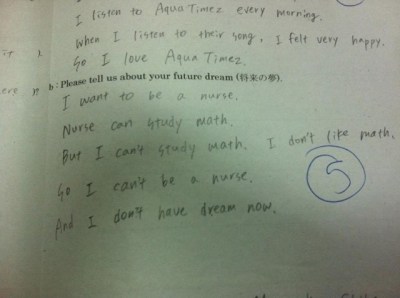 I listen to Aqua Timez every morning.
When I listen to their song, I felt very happy.
So I love Aqua Timez.
b : Please tell us about your future dream (将来の夢).
I want to be a nurse.
Nurse can study math.
But I can't study math. I don't like math.
So I can't be a nurse.
And I don't have dream now.
5